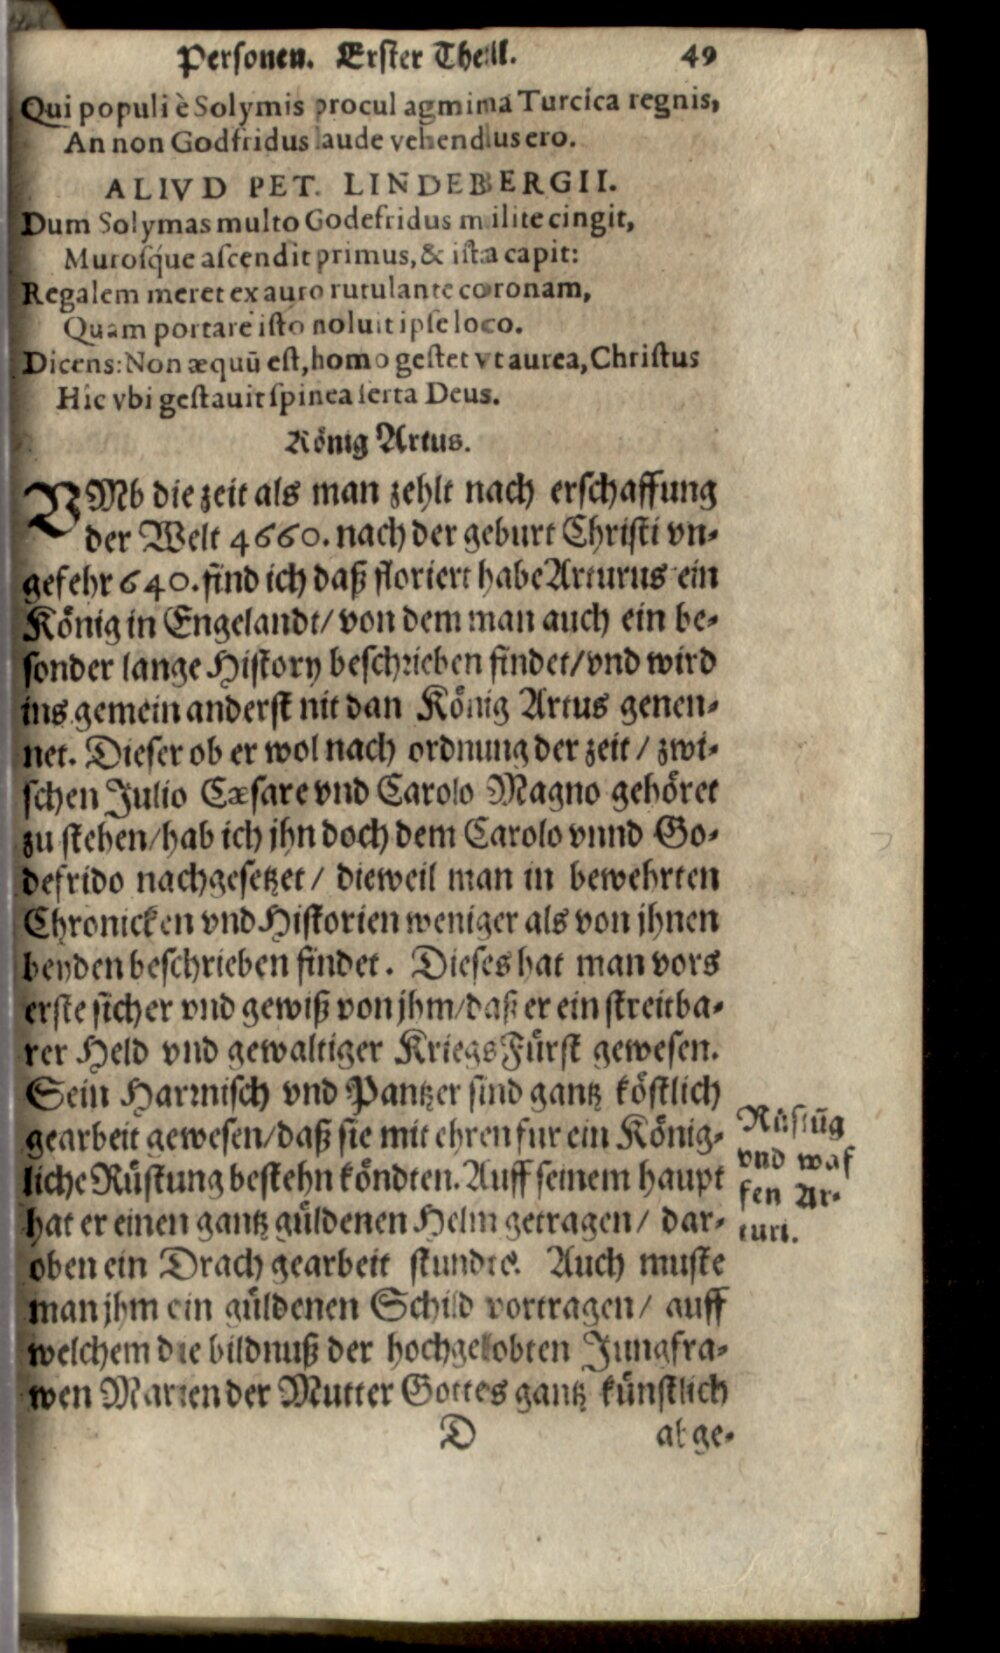 Personen. Erster Theil. 49
Qui populi è Solymis procul agmina Turcica regnis,
An non Godfridus laude vehendus ero.
ALIVD PET. LINDEBERGII.
Dum Solymas multo Godefridus milite cingit,
Murosq́ue ascendit primus, & ista capit:
Regalem meret ex auro rutulante coronam,
Quam portare isto noluit ipse loco.
Dicens: Non æquū est, homo gestet vt aurea, Christus
Hic vbi gestavit spinea serta Deus.
König Artus.
VMb die zeit als man zehlt nach erschaffung
der Welt 4660. nach der geburt Christi vn-
gefehr 640. find ich daß floriert habe Arturus ein
König in Engelandt/ von dem man auch ein be-
sonder lange History beschrieben findet/ vnd wird
ins gemein anderst nit dan König Artus genen-
net. Dieser ob er wol nach ordnung der zeit / zwi-
schen Julio Cæsare vnd Carolo Magno gehöret
zu stehen/ hab ich jhn doch dem Carolo vnnd Go-
defrido nachgesetzet / dieweil man in bewehrten
Chronicken vnd Historien weniger als von jhnen
beyden beschrieben findet. Dieses hat man vors
erste sicher vnd gewiß von jhm/ daß er ein streitba-
rer Held vnd gewaltiger KriegsFürst gewesen.
Sein Harnisch vnd Pantzer sind gantz köstlich
gearbeit gewesen/ daß sie mit ehren fur ein König-
liche Rüstung bestehn köndten. Auff seinem haupt
hat er einen gantz güldenen Helm getragen/ dar-
oben ein Drach gearbeit stundte. Auch muste
man jhm ein güldenen Schild vortragen/ auff
welchem die bildnuß der hochgelobten Jungfra-
wen Marien der Mutter Gottes gantz künstlich
D abge-
Rüstūg
vnd waf
fen Ar-
turi.